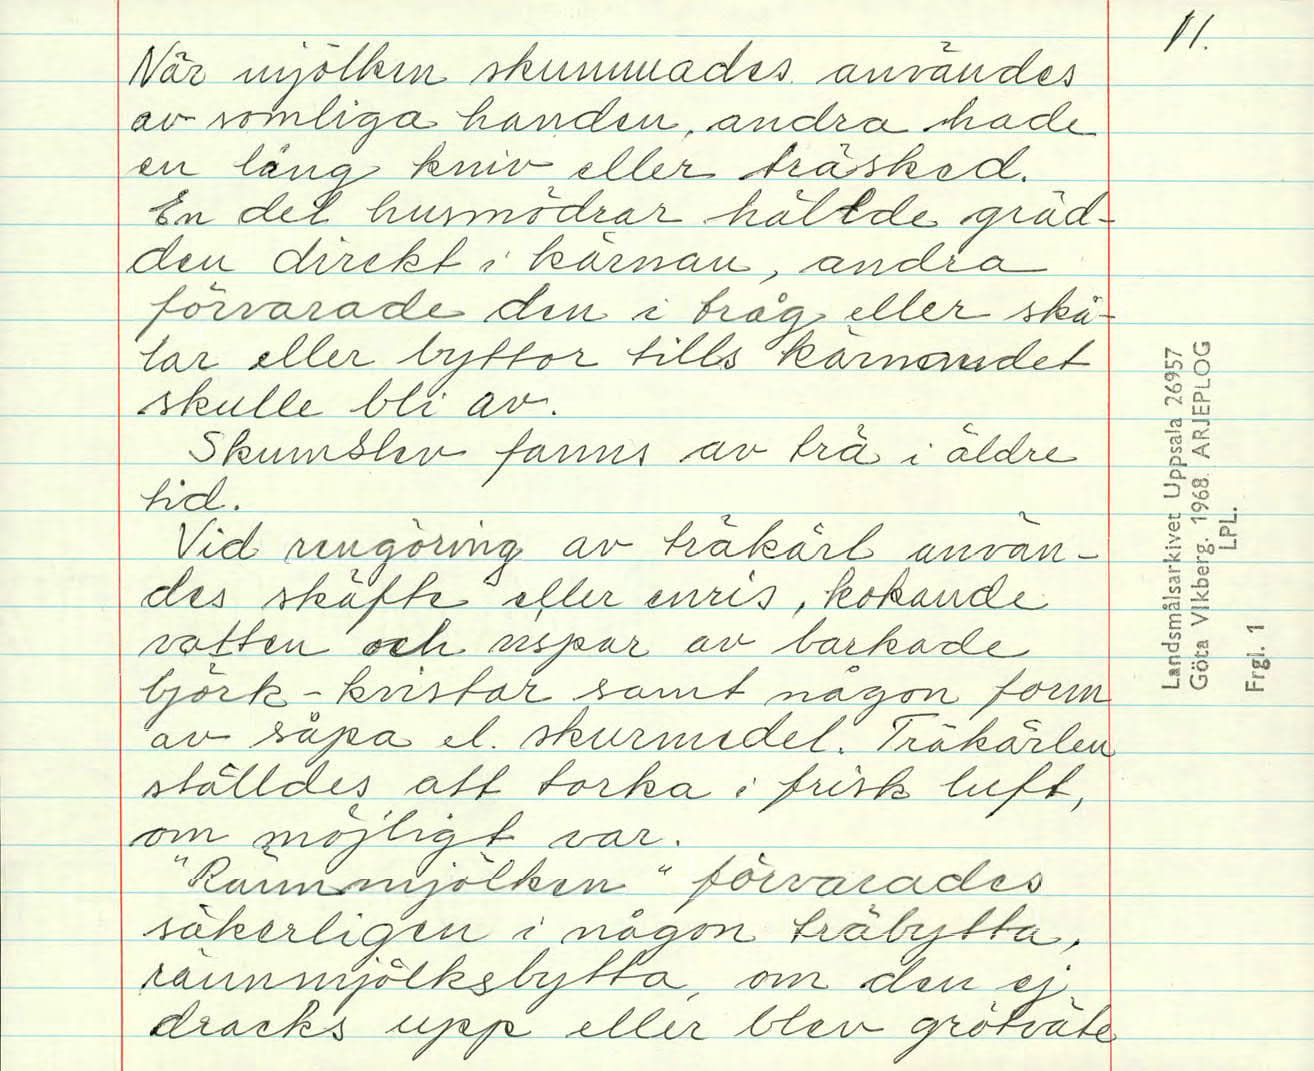 11.
När mjölken skummades användes
av somliga handen, andra hade
en lång kniv eller träsked.
En del husmödrar hällde gräd-
den direkt i kärnan, andra
förvarade den i tråg eller skå-
lar eller byttor tills kärnandet
skulle bli av.
Skumslev fanns av trä i äldre
tid.
Vid rengöring av träkärl använ-
des skäfte eller enris, kokande
vatten och vispar av barkade
björk-kvistar samt någon form
av såpa el. skurmedel. Träkärlen
ställdes att torka i frisk luft,
om möjligt var.
"Rännmjölken" förvarades
säkerligen i någon träbytta,
rännmjölksbytta, om den ej
dracks upp eller blev grötväte
Landsmålsarkivet Uppsala 26957
Göta Vikberg. 1968. ARJEPLOG
LPL.
Frgl. 1